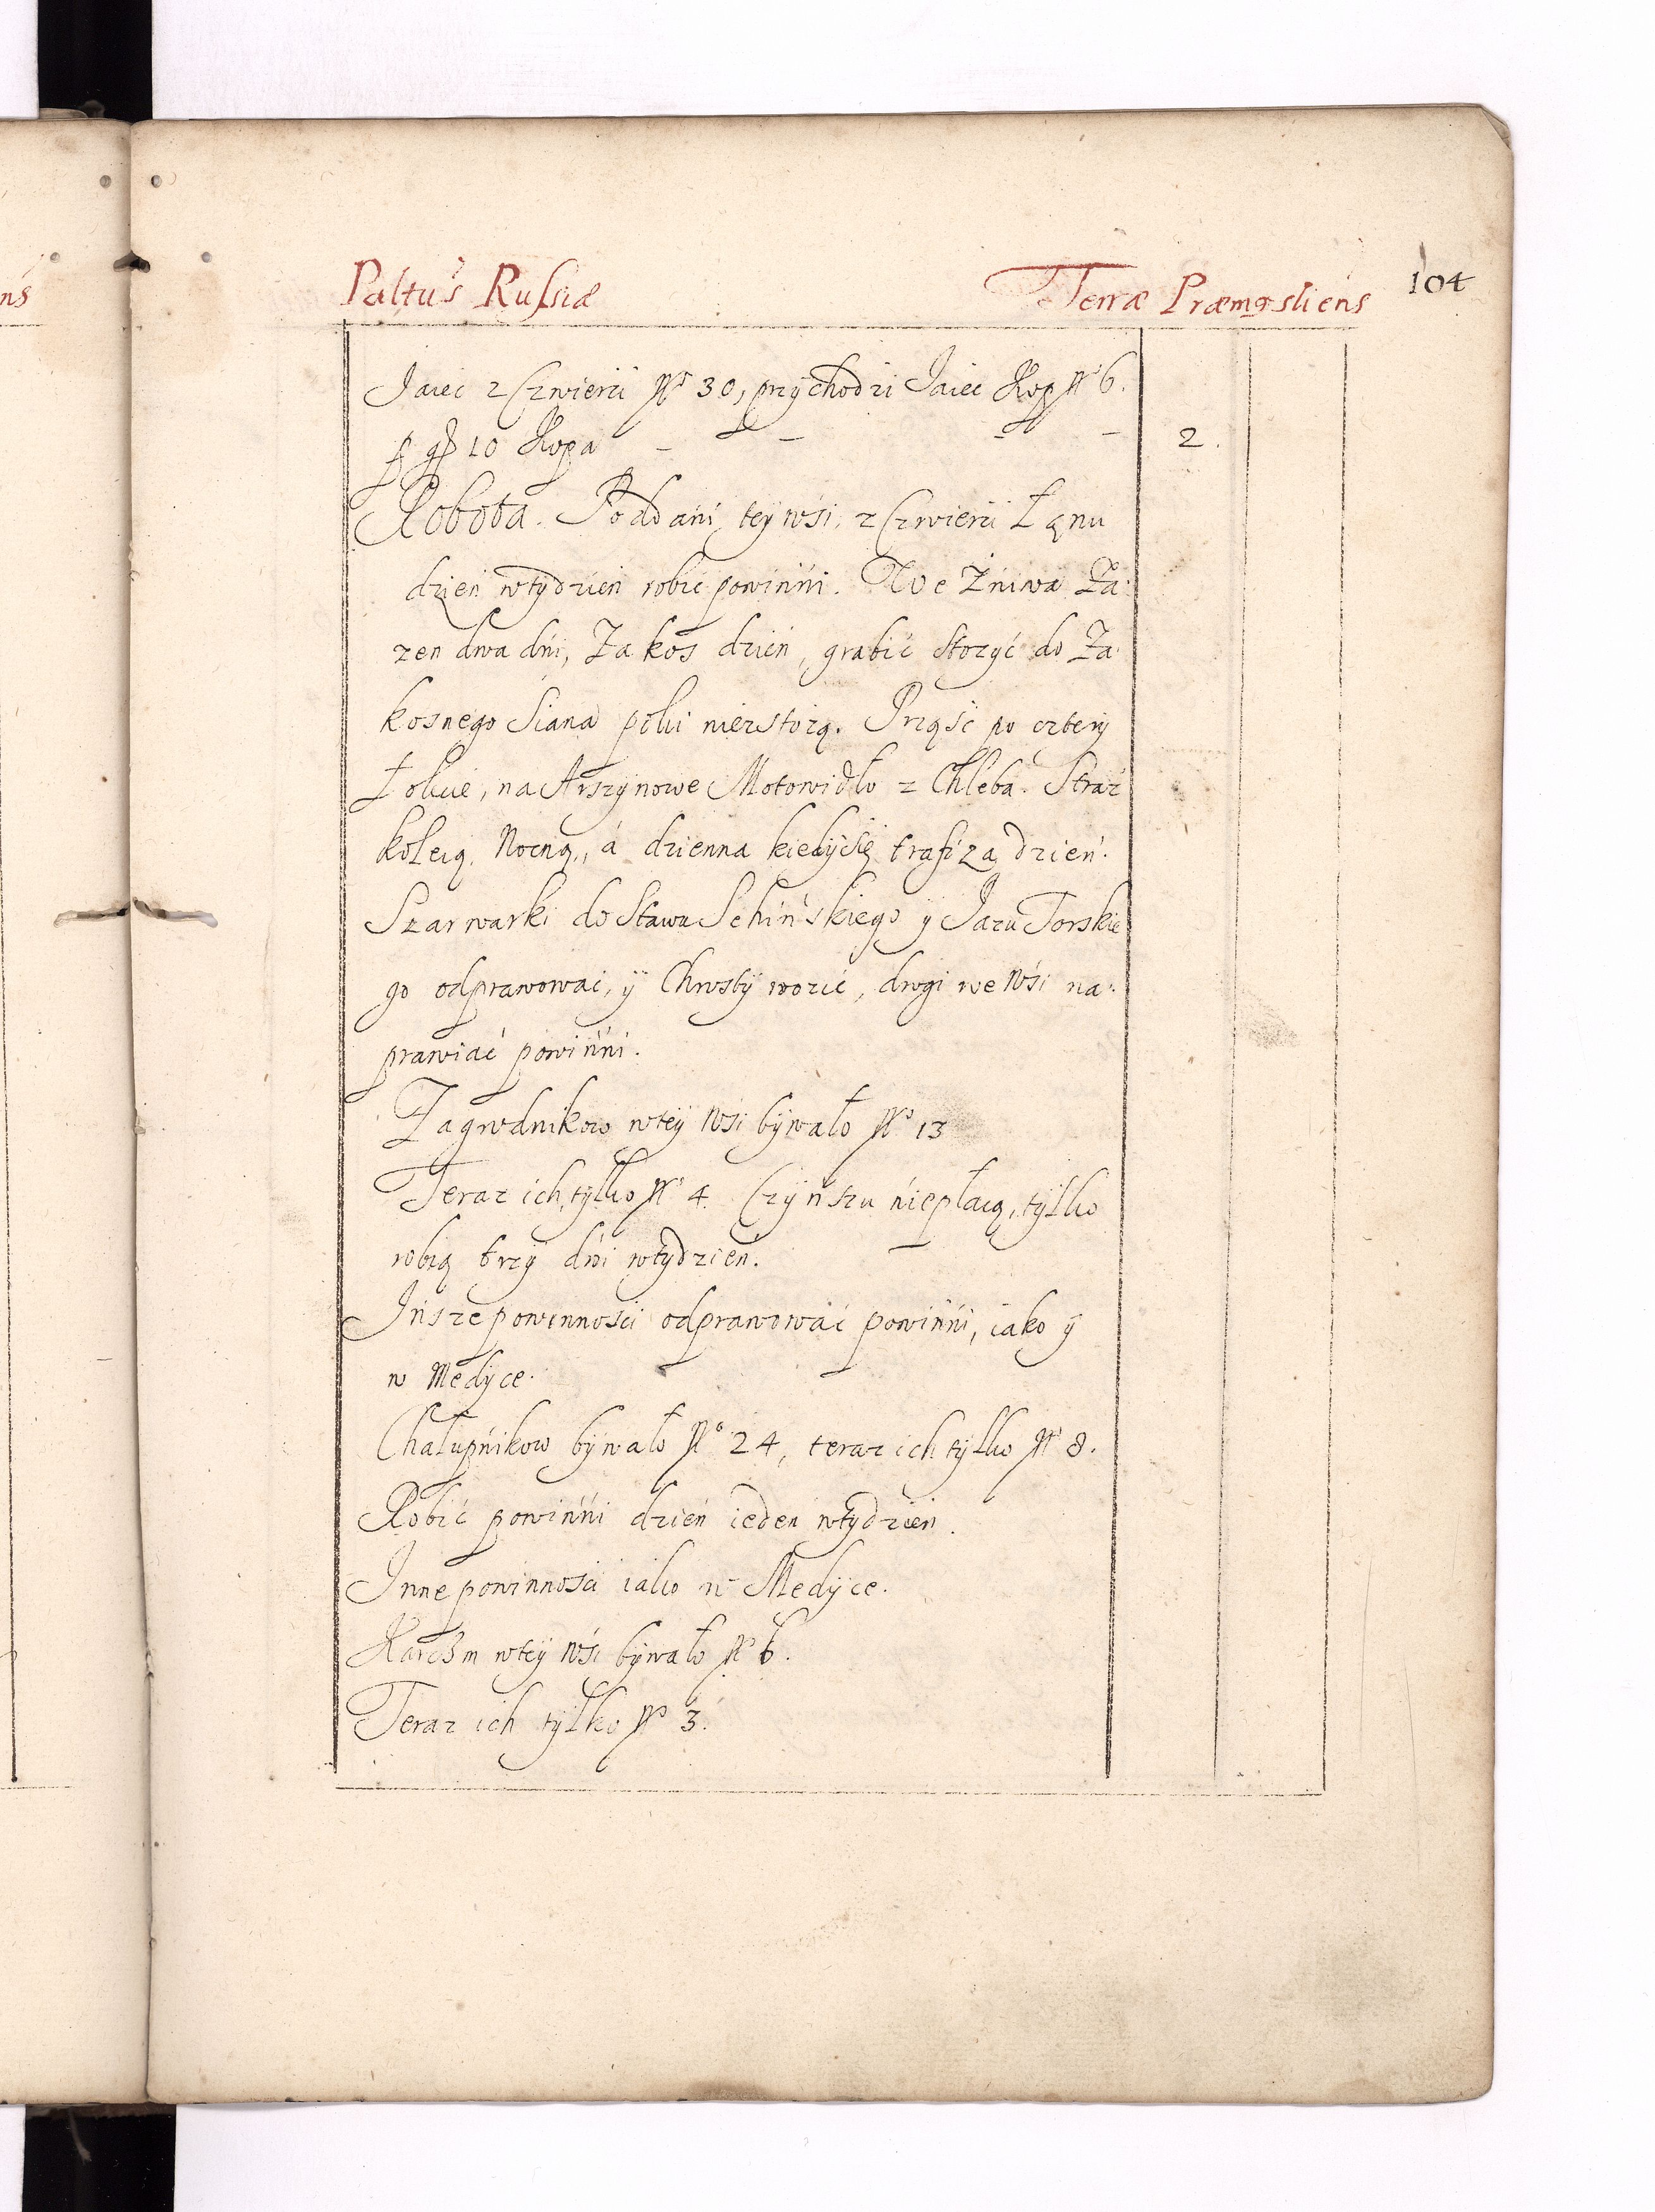 Paltus Russiæ Terræ Præmysliens 104
Jaiec z Czwierci Nº 30, przychodzi Jaiec Kop Nº 6.
p gr 10 Kopa – – – – 2.
Robota. Poddani tey wsi, z Czwierci Łanu
dzień wtydzień robić powinni. We Żniwa Za
zen dwa dni, Za kos dzien, grabić stozyć do Za
kosnego Siana poki niezstozą. Prząść po cztery
Łokcie, na Arszynowe Motowidło z Chleba. Straz
koleią Nocną, á dzienna kiedysię trafi zą dzień.
Szarwarki do Stawu Sehińskiego y Jazu Torskie
go odprawowac, y Chrosty wozić, drogi we wsi na
prawiać powinni.
Zagrodnikow wtey wsi bywało Nº 13
Teraz ich tylko Nº 4. Czynszu niepłacą, tylko
robią trzy dni wtydzień.
Insze powinnosci odprawować powinni, iako y
w Medyce.
Chałupnikow bywało Nº 24, teraz ich tylko Nº 8.
Robić powinni dzień ieden wtydzien.
Inne powinnosci iako w Medyce.
Karczm wtey wsi bywało Nº 6.
Teraz ich tylko Nº 3.
ns